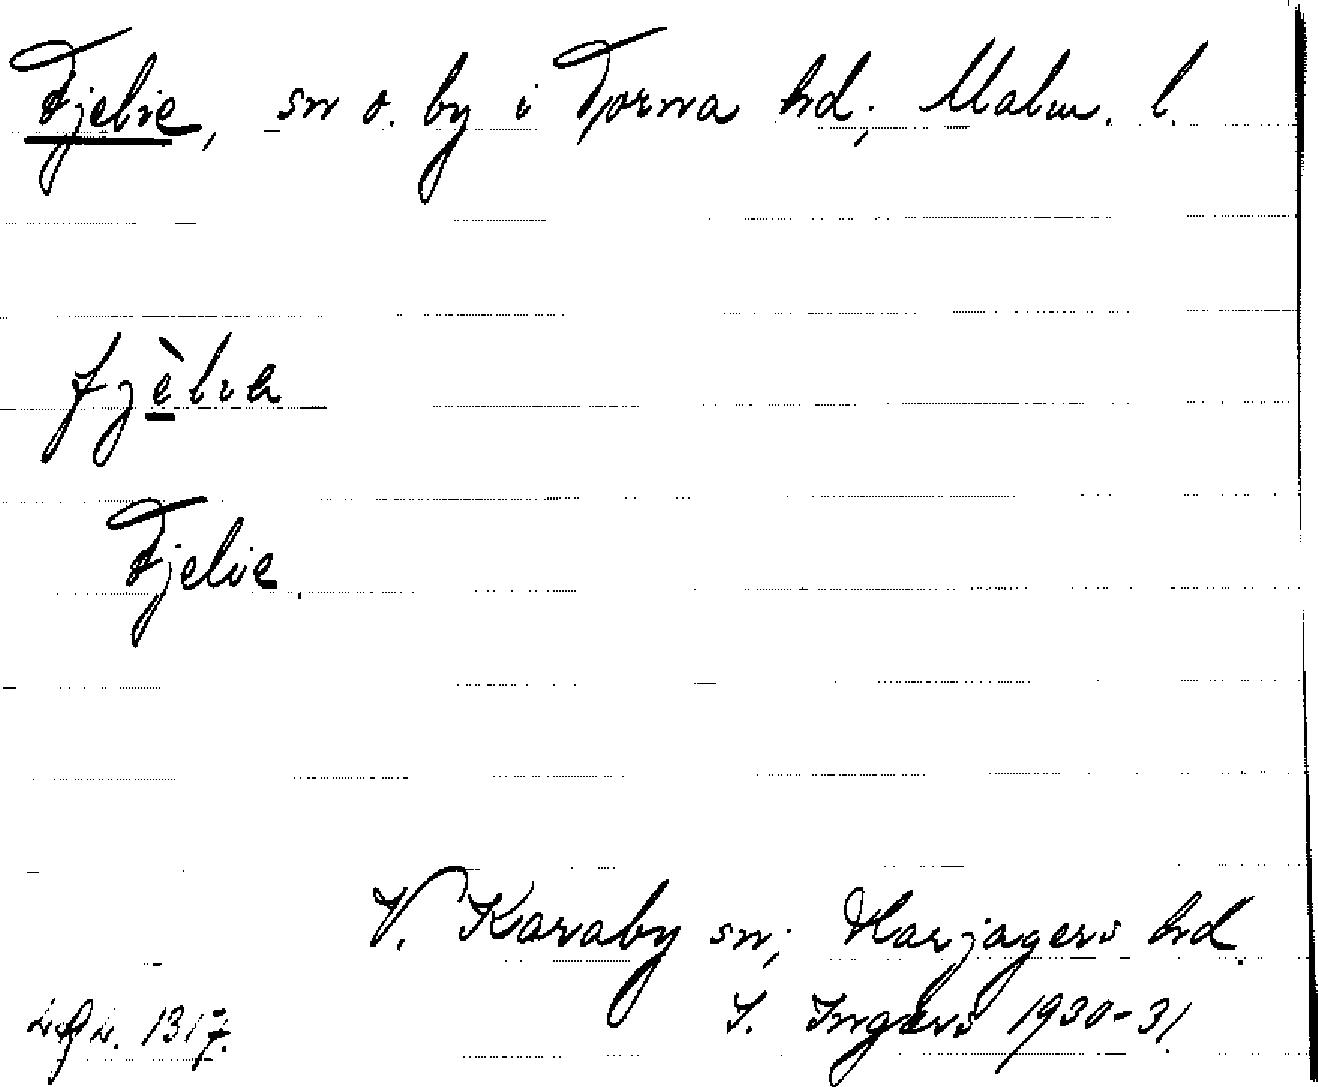 Fjelie, sn o. by i Torna hd, Malm. l.
fjèlia
Fjelie.
V. Karaby sn, Harjagers hd.
I. Ingers 1930-31.
1317.